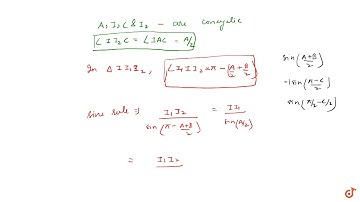 A, I, C & I₂ - are concyclic
∠ I I₂ C = ∠ IAC = A/2
In Δ I I₁ I₂, ∠ I₁ I I₂ = π - (A/2 + B/2)
sine rule ⇒ I₁ I₂ / sin(π - (A+B)/2) = I I₁ / sin(A/2)
= I₁ I₂
sin(A+B/2)
sin(π-C/2)
sin(π/2 - C/2)